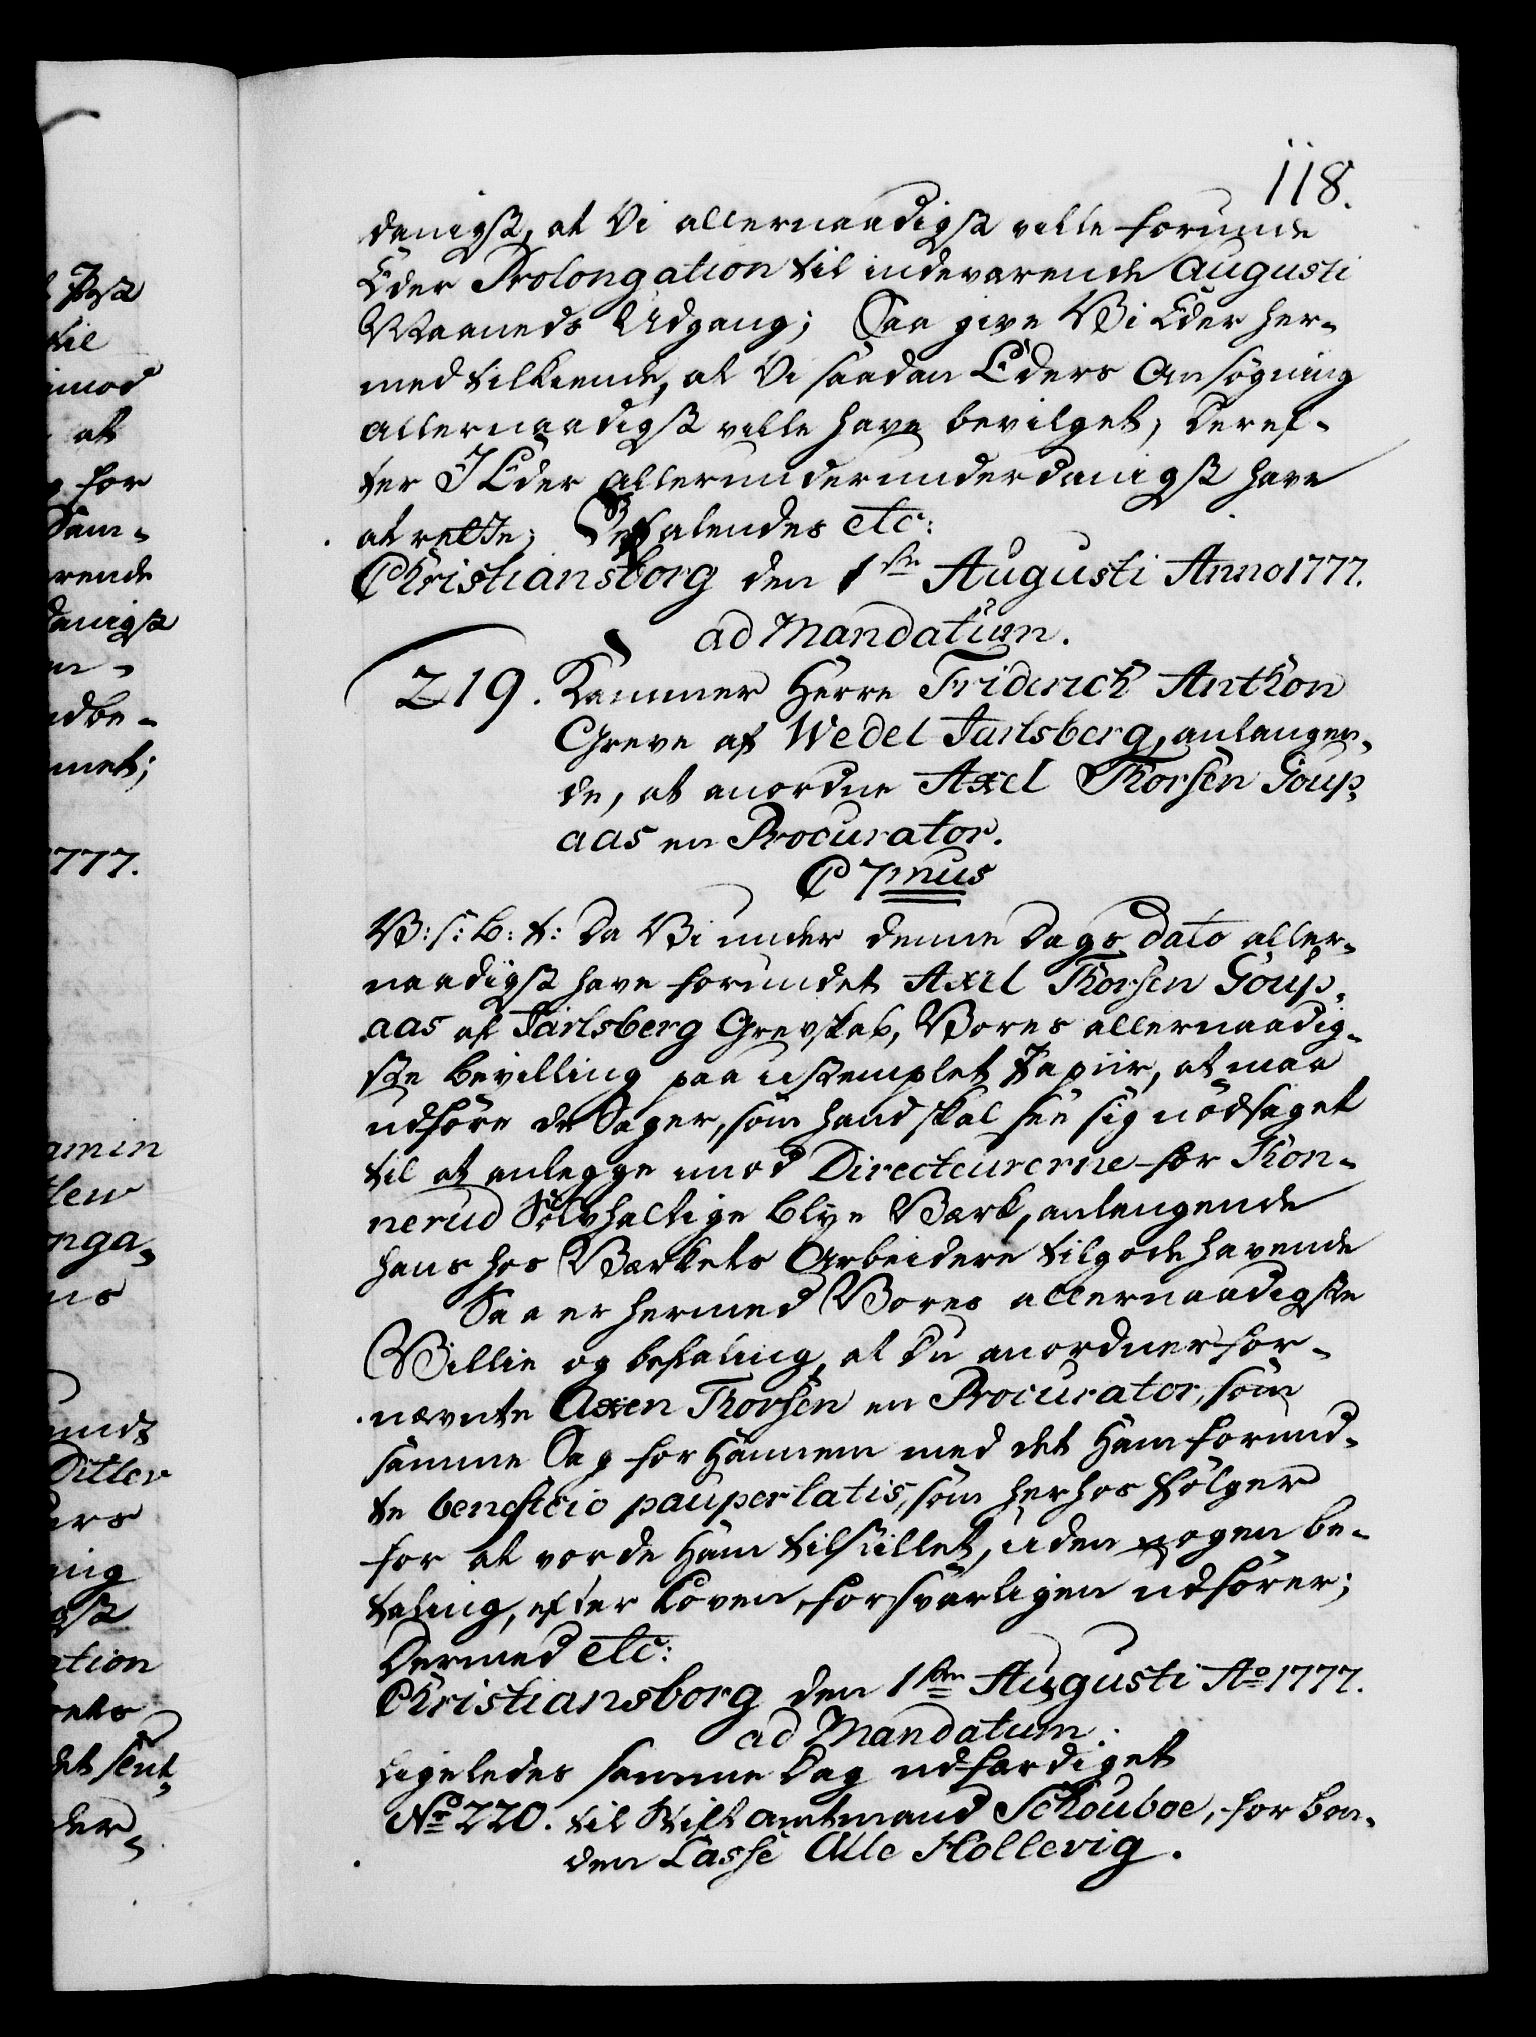 118.
danigst, at Vi allernaadigst ville forunde
Eder Prolongation til indeværende Augusti
Maaneds Udgang; Saa give Vi Eder her-
med tilkiende, at Vi saadan Eders Ansøgning
allernaadigst ville have bevilget; Deref-
ter I Eder allerunderunderdanigst have
at rette; Befalendes etc:
Christiansborg den 1ste Augusti Anno 1777.
ad Mandatum.
219. Kammer Herre Friderich Anthon
Greve af Wedel Jarlsberg, anlangen-
de, at anordne Axel Thorsen Goup-
aas en Procurator.
C 7mus
V: s: b: t: Da Vi under denne Dags dato aller-
naadigst have forundet Axel Thorsen Goup-
aas af Jarlsberg Grevskab, Vores allernaadig-
ste bevilling paa ustemplet Papiir, at maa
udføre de Sager, som hand skal see sig nødsaget
til at anlegge imod Directeurerne for Kon-
nerud Sølvhaltige blye Værk, anlangende
hans hos Værkets Arbeidere tilgodehavende
Saa er hermed Vores allernaadigste
Villie og befaling, at Du anordner for-
nævnte Axen Thorsen en Procurator, som
samme Sag for Hannem med det Ham forund-
te beneficio paupertatis, som herhos følger
for at vorde Ham tilstillet, uden nogen be-
taling, efter Loven, forsvarligen udfører;
Dermed etc:
Christiansborg den 1ste Augusti Ao 1777.
ad Mandatum.
Ligeledes samme Dag udfærdiget
No 220. til Stiftamtmand Schouboe, for bon-
den Lasse Olle Hollevig.
ß
til
imod
at
for
Sam-
rende
danigst
en-
adbe-
met;
1777.
amin
tlev
nga-
ns
Ditlev
ers
ning
ation
det sent-
der-